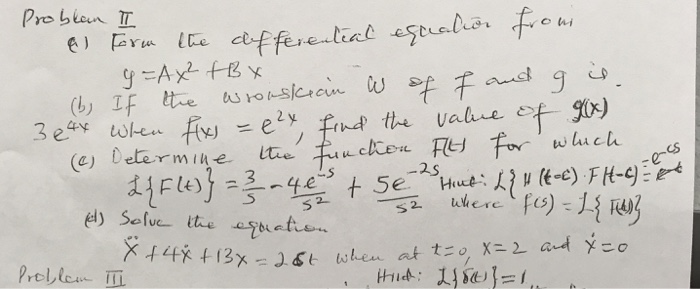 Problem II
a) Form the differential equation from
y = Ax² + Bx
(b) If the wronskian W of f and g is
3e^{4x} when f(x) = e^{2x}, find the value of g(x)
(c) Determine the function F(t) for which
L{F(t)} = 3/s - 4e^{-s}/s² + 5e^{-2s}/s² Hint: L{H(t-c)·F(t-c)} = e^{-cs}
where f(s) = L{F(t)}
(d) Solve the equation
ẍ + 4ẋ + 13x = 2δt when at t=0, x=2 and ẋ=0
Problem III
Hint: L{δ(t)} = 1